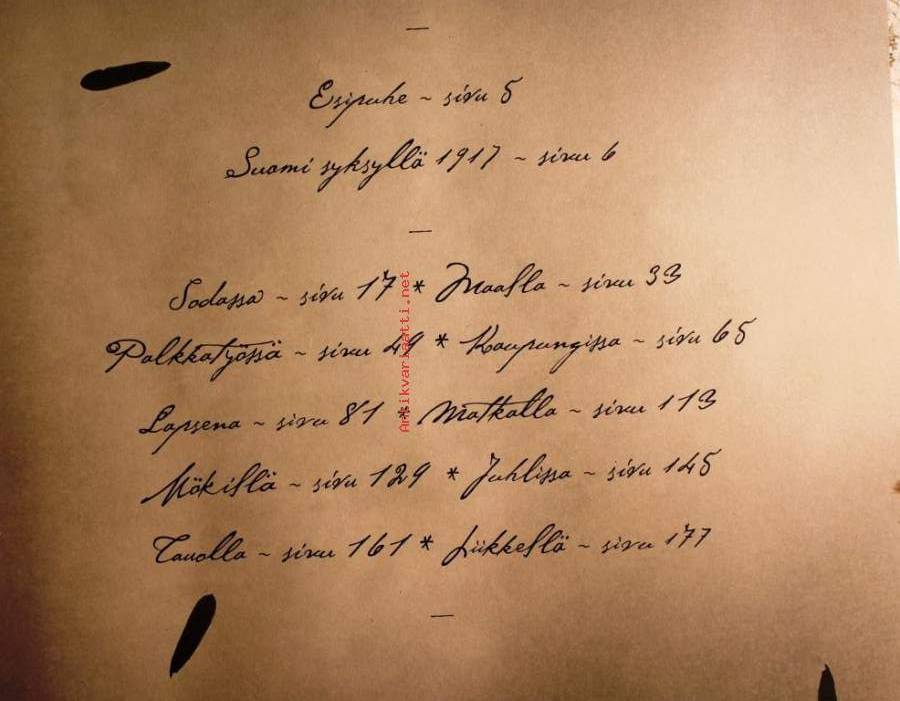 Esipuhe ~ sivu 5
Suomi syksyllä 1917 ~ sivu 6
Sodassa ~ sivu 17 * Maalla ~ sivu 33
Palkkatyössä ~ sivu 49 * Kaupungissa ~ sivu 65
Lapsena ~ sivu 81 * Matkalla ~ sivu 113
Mökillä ~ sivu 129 * Juhlissa ~ sivu 145
Tauolla ~ sivu 161 * Liikkellä ~ sivu 177
Antikvariaatti.net